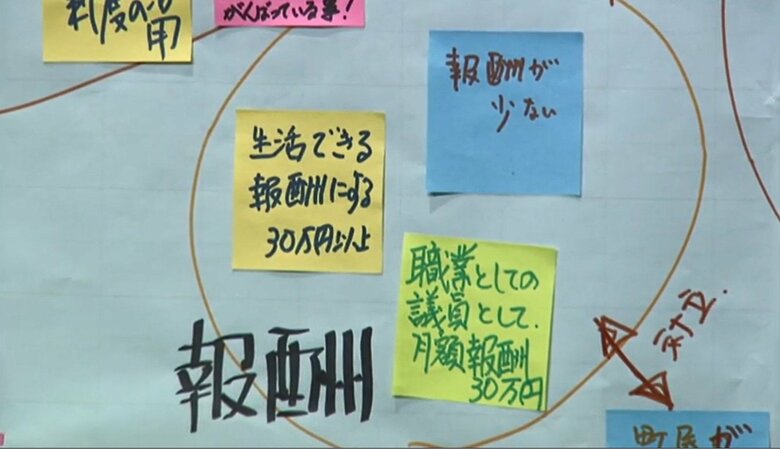 制度の活用
がんばっている事!
報酬が
少ない
生活できる
報酬にする
30万円以上
職業としての
議員として.
月額報酬
30万円
対立.
報酬
町民が